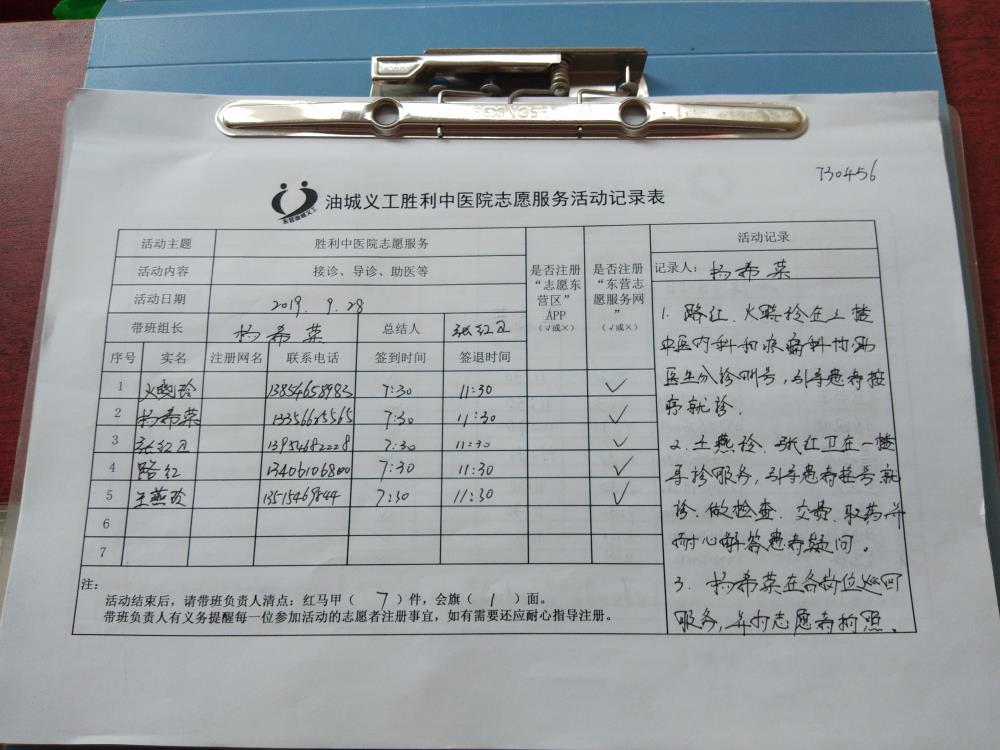 730456
东营油城义工
油城义工胜利中医院志愿服务活动记录表
活动主题 胜利中医院志愿服务
活动内容 接诊、导诊、助医等
活动日期 2019. 9. 28
带班组长 杨希荣 总结人 张红卫
序号 实名 注册网名 联系电话 签到时间 签退时间
是否注册“志愿东营区”APP（√或×）
是否注册“东营志愿服务网”（√或×）
1 火晓玲 13854658983 7:30 11:30 ✓
2 杨希荣 13356625565 7:30 11:30 ✓
3 张红卫 13954682228 7:30 11:30 ✓
4 路红 13406106800 7:30 11:30 ✓
5 王燕玲 7:30 11:30 ✓
6
7
注：
活动结束后，请带班负责人清点：红马甲（ 7 ）件，会旗（ 1 ）面。
带班负责人有义务提醒每一位参加活动的志愿者注册事宜，如有需要还应耐心指导注册。
活动记录
记录人：杨希荣
1. 路红、火晓玲在二楼
中医内科和疼痛科协助
医生分诊叫号，引导患者按
序就诊.
2. 王燕玲、张红卫在一楼
导诊服务，引导患者挂号就
诊、做检查、交费、取药并
耐心解答患者疑问。
3. 杨希荣在各岗位巡回
服务，并为志愿者拍照.